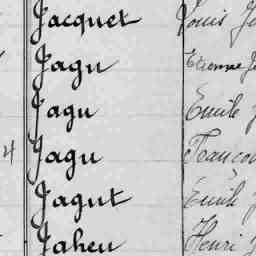 Jacquet Louis
Jagu Etienne
Jagu Emile
4 Jagu
Jagut Emile
Jaheu Henri